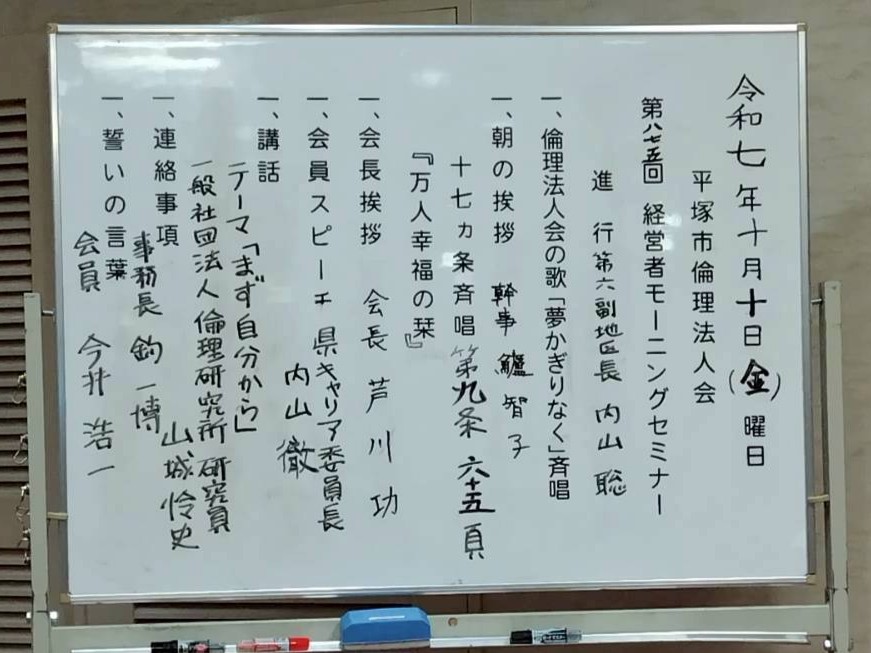 令和七年十月十日(金)曜日
平塚市倫理法人会
第八七五回 経営者モーニングセミナー
進行 第六副地区長 内山 聡
一、倫理法人会の歌「夢かぎりなく」斉唱
一、朝の挨拶 幹事 鱸 智子
十七ヵ条斉唱 第九条 六十五頁
『万人幸福の栞』
一、会長挨拶 会長 芦川 功
一、会員スピーチ 県キャリア委員長
内山 徹
一、講話
テーマ「まず自分から」
一般社団法人倫理研究所 研究員
山城 怜史
一、連絡事項
事務長 鈎 一博
一、誓いの言葉
会員 今井 浩一